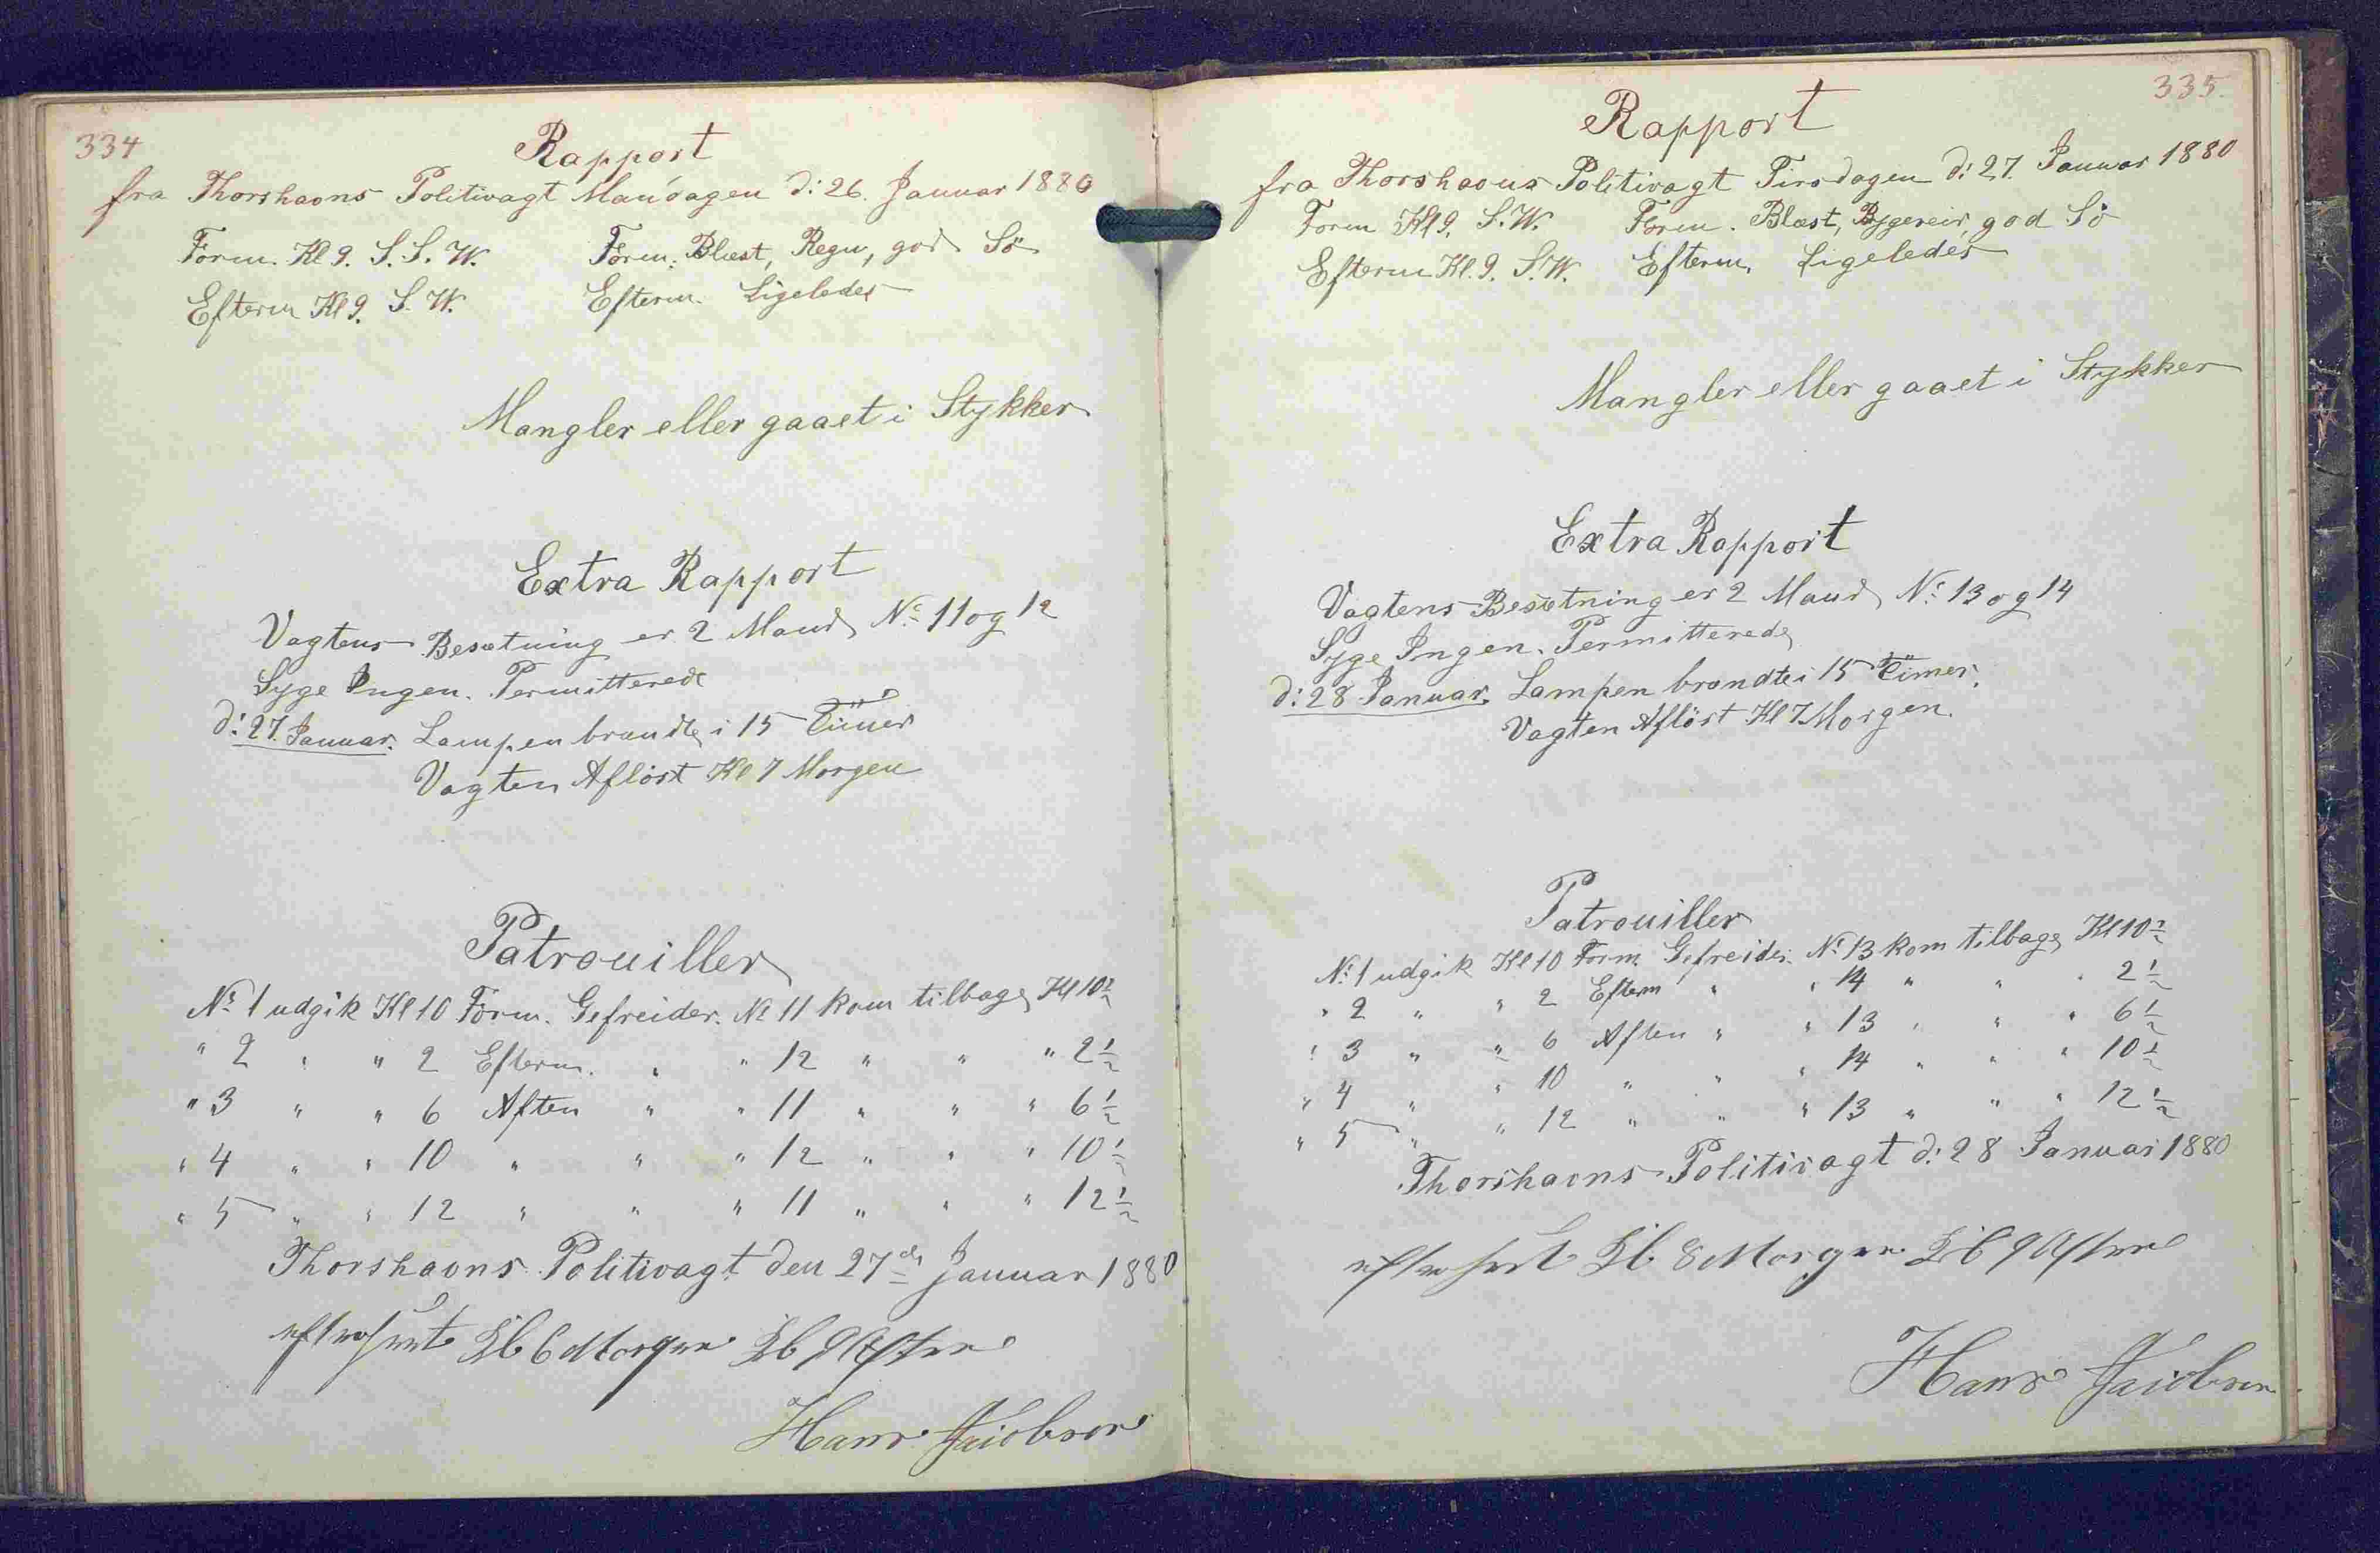 334
Rapport
fra Thorshavns Politivagt Mandagen d: 26. Januar 1880
Form. Kl 9. S. S. W. Form. Blæst, Regn, god Sö
Efterm Kl 9. S. W. Efterm. Ligeledes
Mangler eller gaaet i Stykker
Extra Rapport
Vagtens Besætning er 2 Mand No 11 og 12
Syge Ingen. Permitterede
d: 27. Januar. Lampen brændte i 15 Timer
Vagten Aflöst Kl 7 Morgen
Patrouiller
No 1 udgik Kl 10 Form. Gefreider. No 11 kom tilbage Kl 10½
" 2 " " 2 Efterm. " " 12 " " " 2½
" 3 " " 6 Aften " " 11 " " " 6½
" 4 " " 10 " " " 12 " " " 10½
" 5 " " 12 " " " 11 " " " 12½
Thorshavns Politivagt den 27de Januar 1880
efterseet Kl 6 Morgen Kl 9 Aften
Hans Jacobsen
335
Rapport
fra Thorshavns Politivagt Tirsdagen d: 27. Januar 1880
Form Kl 9. S. W. Form. Blæst, Bygeveir, god Sö
Efterm Kl. 9. S. W. Efterm. Ligeledes
Mangler eller gaaet i Stykker
Extra Rapport
Vagtens Besætning er 2 Mand No 13 og 14
Syge Ingen. Permitterede
d: 28 Januar. Lampen brændte i 15 Timer.
Vagten Aflöst Kl 7 Morgen.
Patrouiller
No 1 udgik Kl 10 Form. Gefreider. No 13 kom tilbage Kl 10½
" 2 " " 2 Efterm " " 14 " " " 2½
" 3 " " 6 Aften " " 13 " " " 6½
" 4 " " 10 " " " 14 " " " 10½
" 5 " " 12 " " " 13 " " " 12½
Thorshavns Politivagt d: 28 Januar 1880
efterseet Kl 8 Morgen Kl 9 Aften
Hans Jacobsen